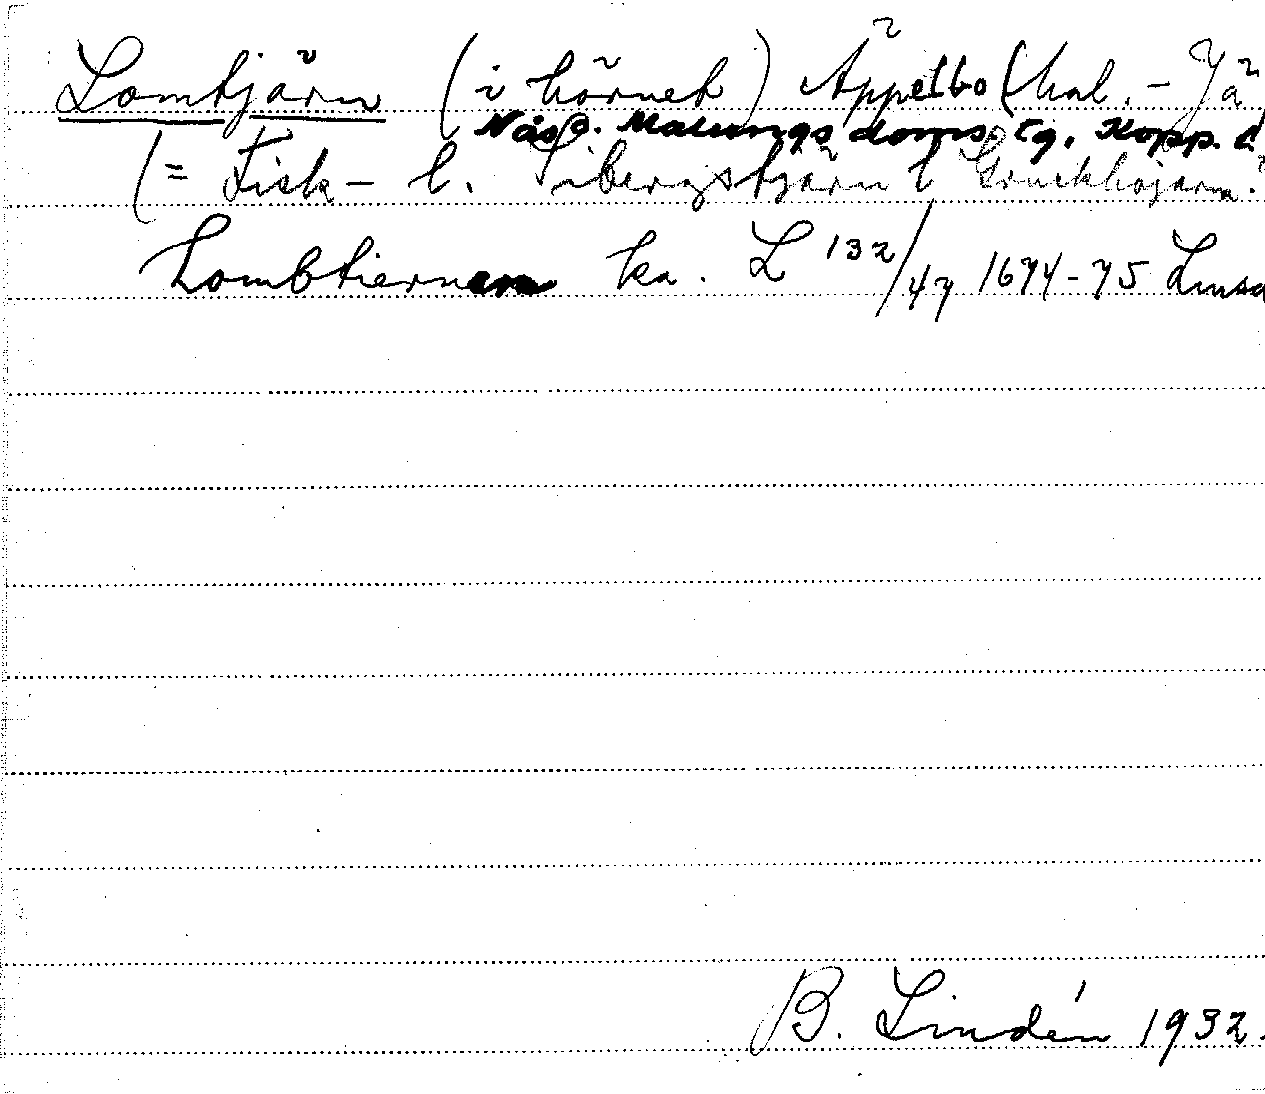 Lomtjärn (i hörnet) Äppelbo (Mal. - Jä
Nås o. Malungs doms. tg. Kopp. l
(= Fisk- l. Sibergstjärn l
Lombtiernen ka. L 132/47 1674-75 Lmsa
B. Lindén 1932.